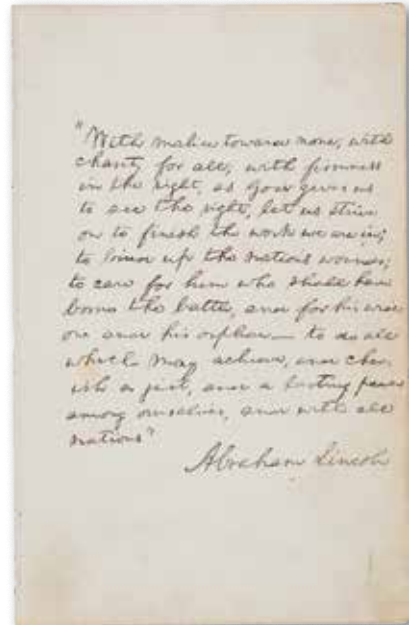 "With malice toward none, with
charity for all, with firmness
in the right, as God gives us
to see the right, let us strive
on to finish the work we are in;
to bind up the nations wounds;
to care for him who shall have
borne the battle, and for his widow
and his orphan— to do all
which may achieve, and cher-
ish a just, and a lasting peace
among ourselves, and with all
nations"
Abraham Lincoln